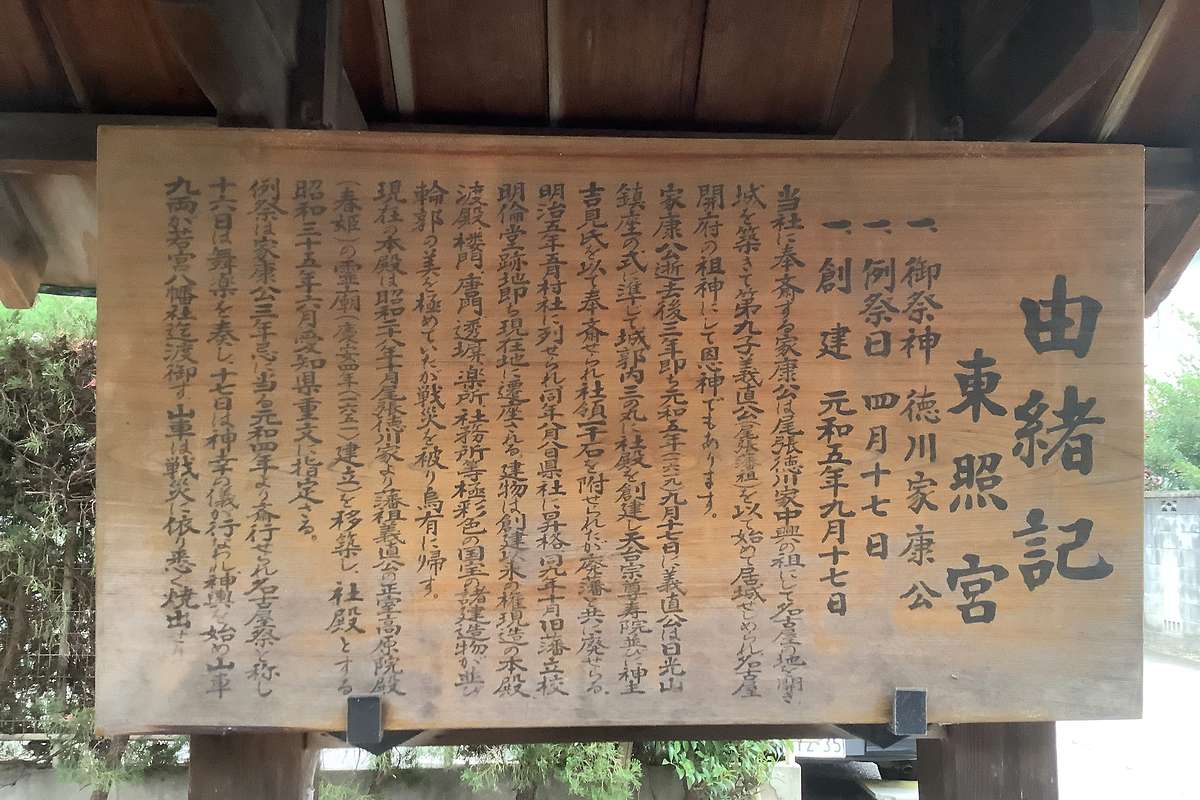 由緒記
東照宮
一、御祭神 徳川家康公
一、例祭日 四月十七日
一、創建 元和五年九月十七日
当社に奉斎する家康公は尾張徳川家中興の祖にして名古屋の地を開き
城を築きて第九子義直公(尾張藩祖)を以て始めて居城せしめられ名古屋
開府の祖神にして恩神でもあります。
家康公逝去後三年即ち元和五年(一六一九)九月十七日に義直公は日光山
鎮座の式に準じて城郭内三の丸に社殿を創建し天台宗尊寿院並びに神主
吉見氏を以て奉斎せられ社領一千石を附せられたが廃藩と共に廃せらる
明治五年五月村社に列せられ同年八月八日県社に昇格同九年十月旧藩立校
明倫堂跡地即ち現在地に遷座される。建物は創建以来の権現造の本殿
渡殿楼門唐門透塀楽所社務所等極彩色の国宝の諸建造物が並び
輪郭の美を極めていたが戦災を被り烏有に帰す。
現在の本殿は昭和二八年十月尾張徳川家より藩祖義直公の正室高原院殿
(春姫)の霊廟(慶安四年(一六五一)建立)を移築し、社殿とする
昭和三十五年六月愛知県重文に指定さる。
例祭は家康公三年忌に当る元和四年より斎行せられ名古屋祭と称し
十六日は舞楽を奏し、十七日は神幸の儀が行われ神輿を始め山車
九両が若宮八幡社迄渡御す 山車は戦災に依て悉く焼出